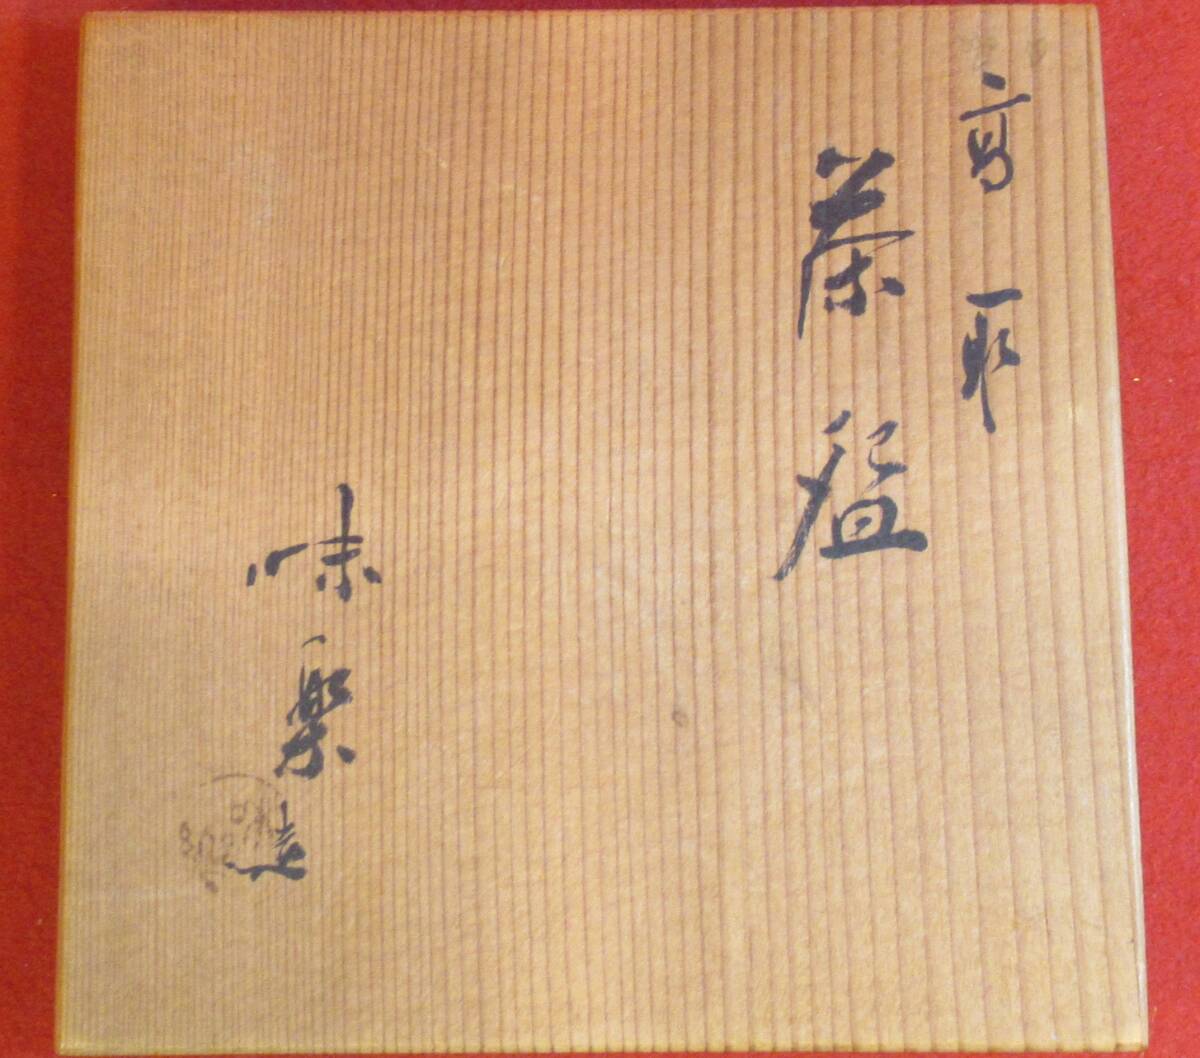 高取
茶盌
味楽造